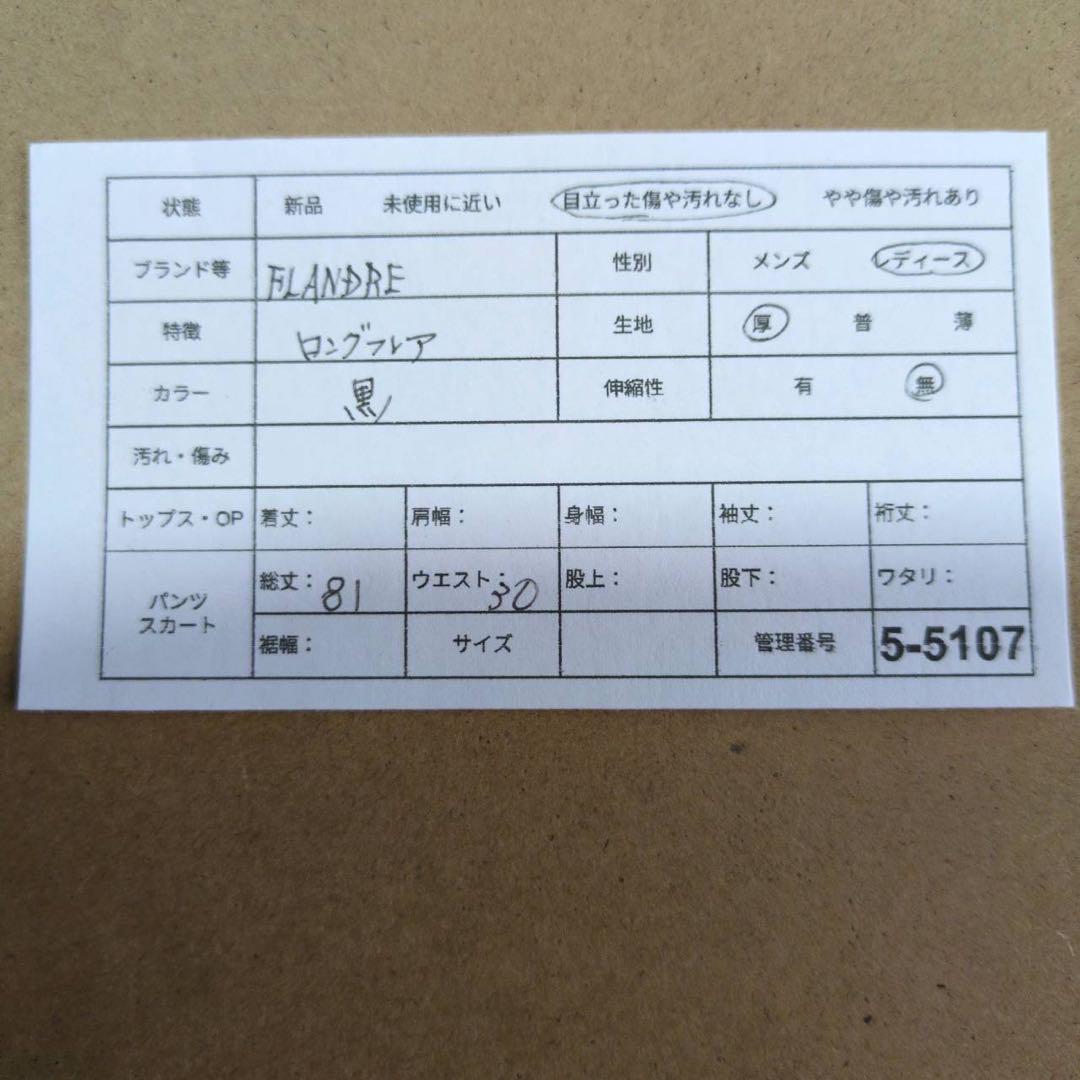 状態 新品 未使用に近い 目立った傷や汚れなし やや傷や汚れあり
ブランド等 FLANDRE 性別 メンズ レディース
特徴 ロングフレア 生地 厚 普 薄
カラー 黒 伸縮性 有 無
汚れ・傷み
トップス・OP 着丈： 肩幅： 身幅： 袖丈： 裄丈：
パンツ
スカート
総丈：81 ウエスト：30 股上： 股下： ワタリ：
裾幅： サイズ 管理番号 5-5107